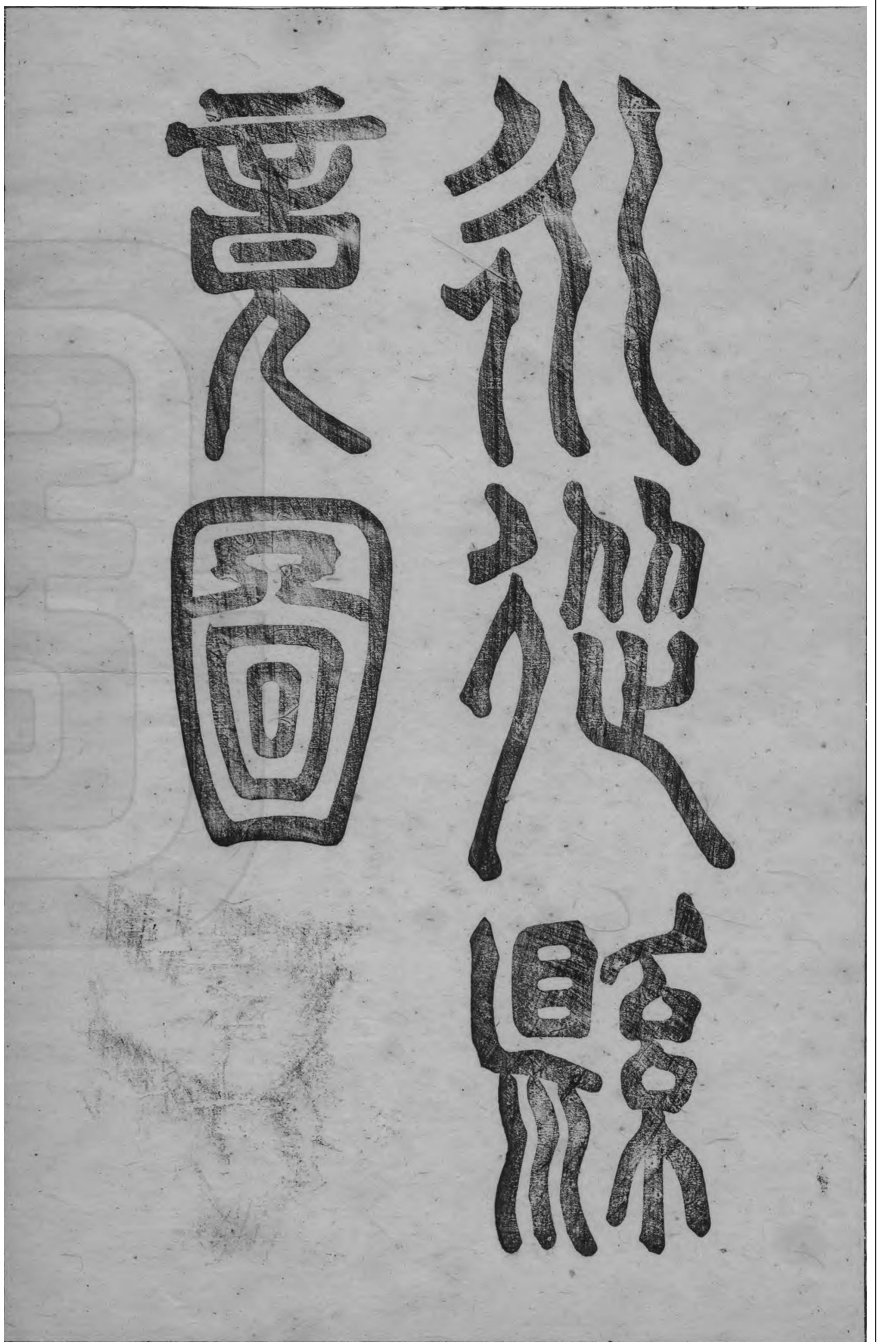 永從縣
竟圖